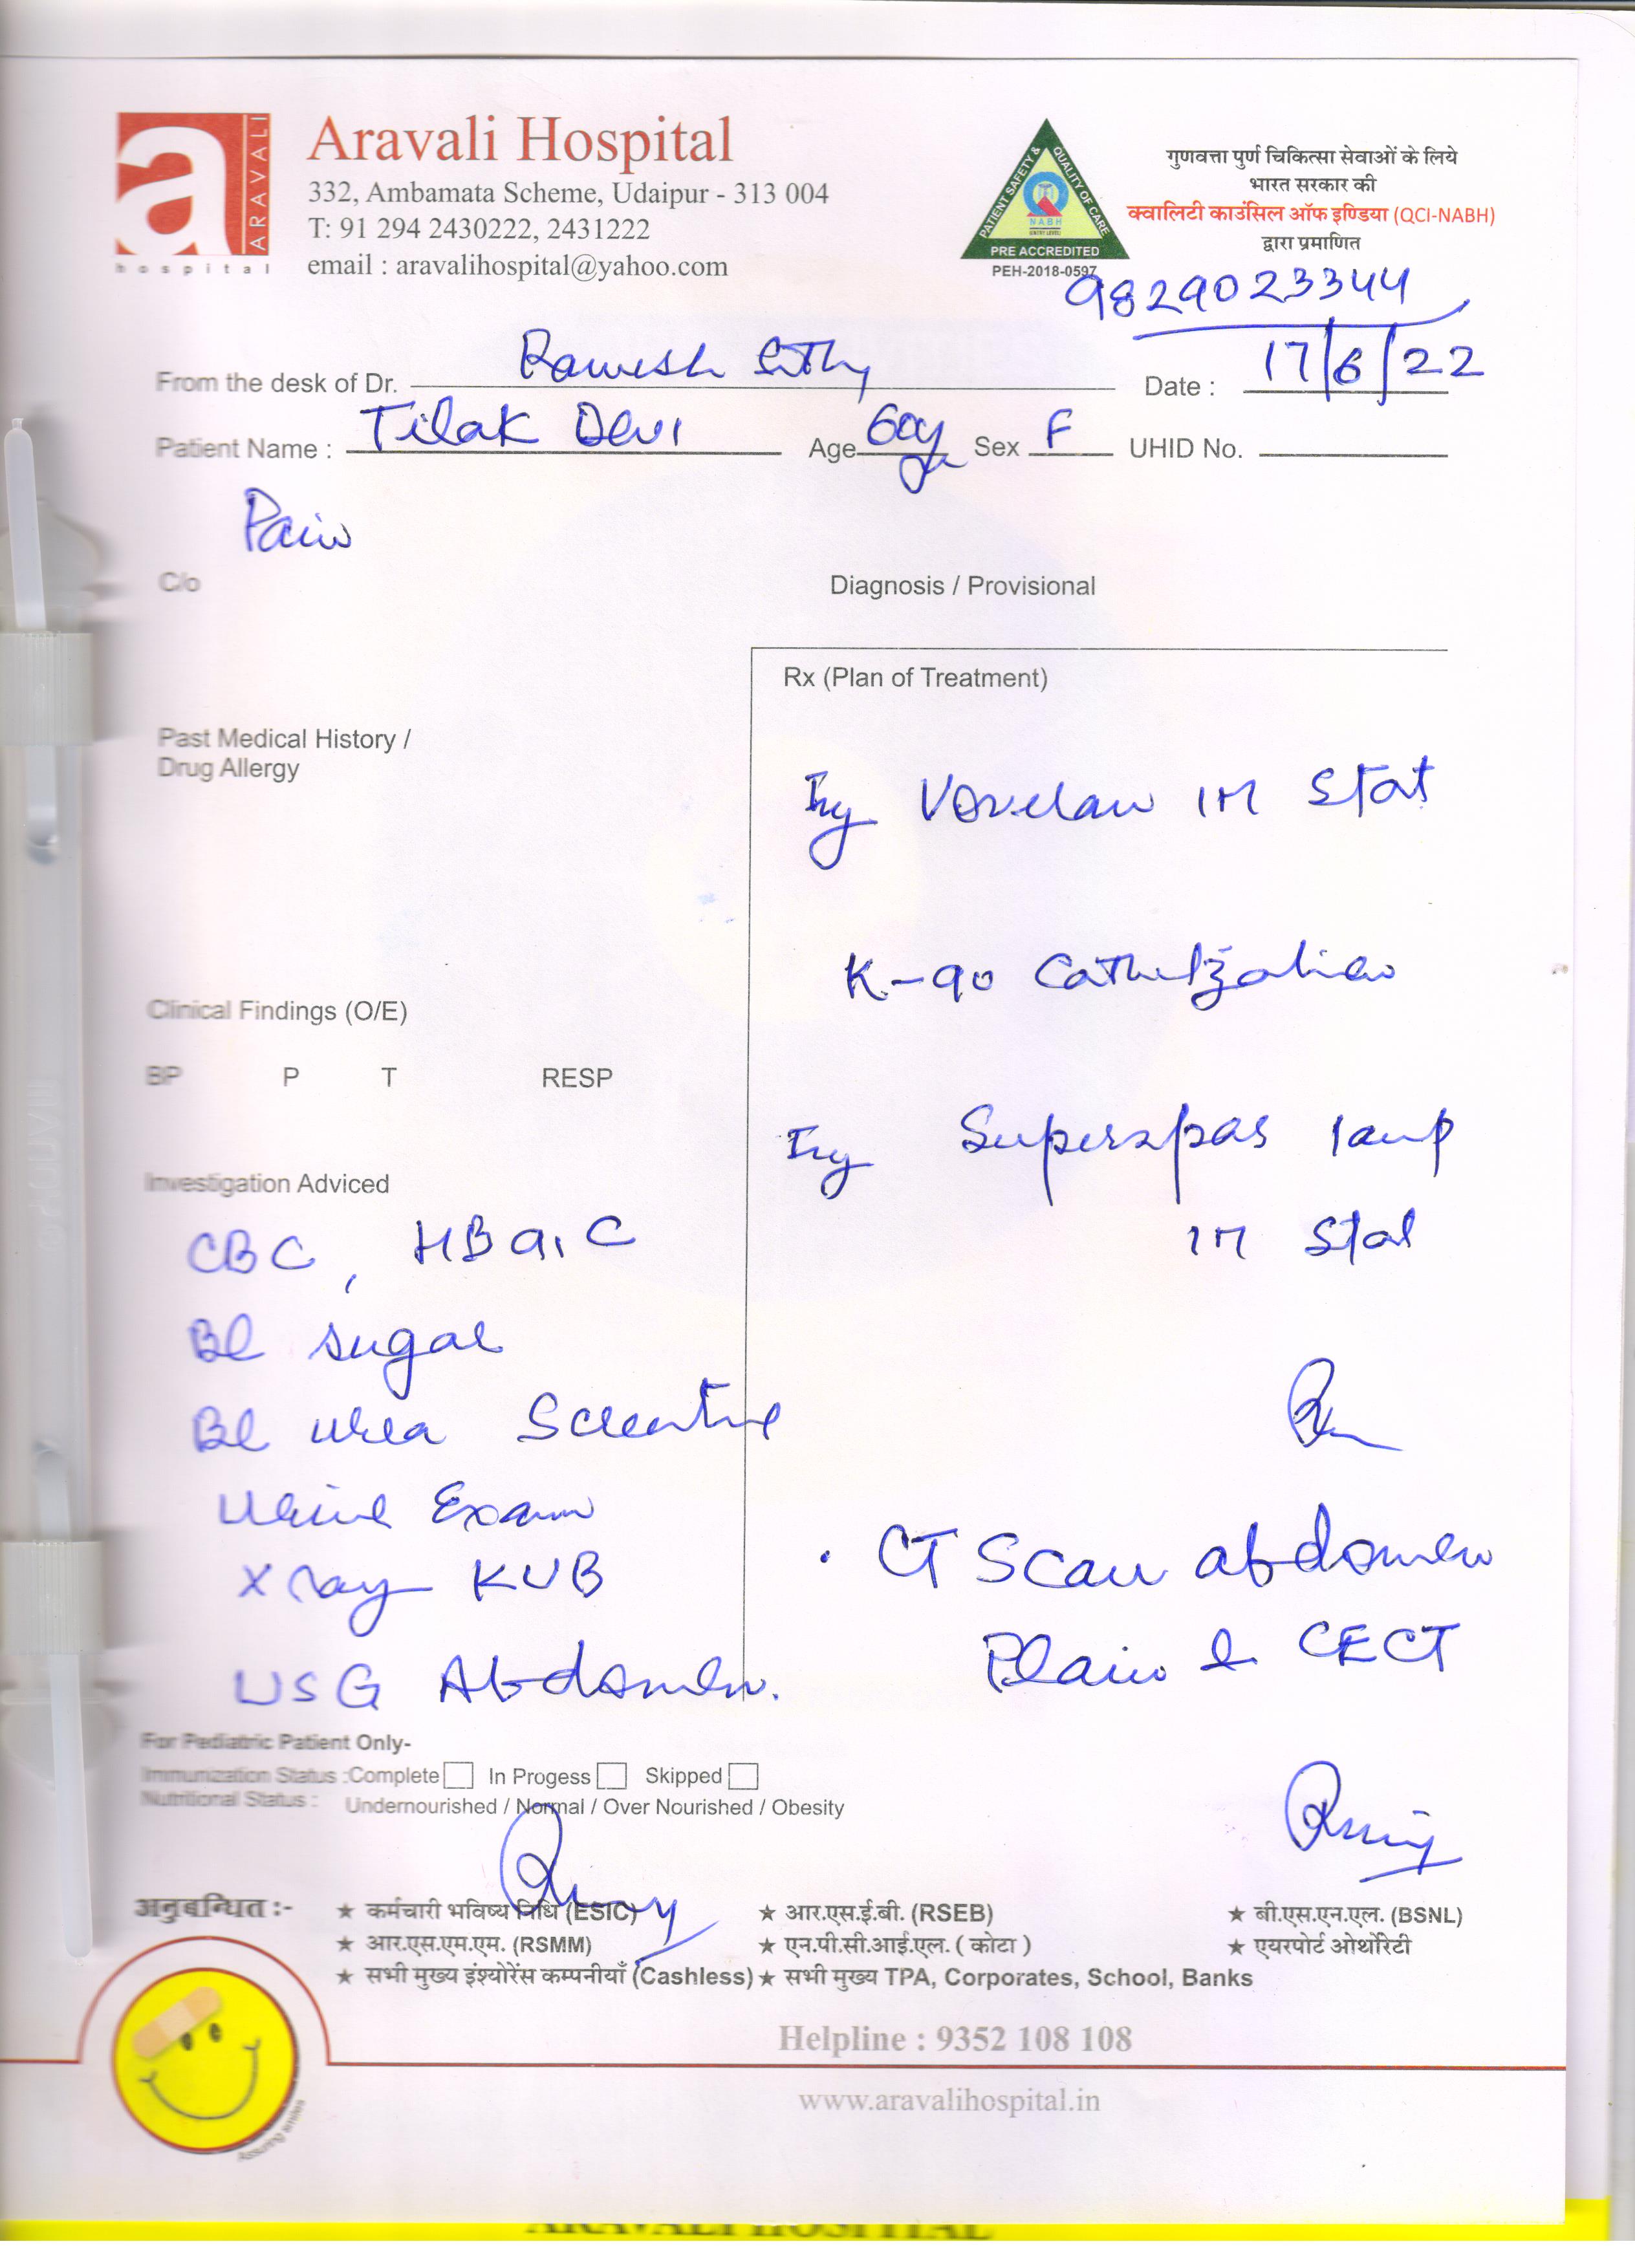 ARAVALI
hospital
Aravali Hospital
332, Ambamata Scheme, Udaipur - 313 004
T: 91 294 2430222, 2431222
email : aravalihospital@yahoo.com
PATIENT SAFETY & QUALITY OF CARE
NABH
PRE ACCREDITED
PEH-2018-0597
गुणवत्ता पुर्ण चिकित्सा सेवाओं के लिये
भारत सरकार की
क्वालिटी काउंसिल ऑफ इण्डिया (QCI-NABH)
द्वारा प्रमाणित
9829023344
From the desk of Dr. Ramesh Date : 17/6/22
Patient Name : Tilak Devi Age 60y Sex F UHID No.
Pain
C/o
Diagnosis / Provisional
Rx (Plan of Treatment)
Past Medical History /
Drug Allergy
Inj Voveran IM Stat
K-90 
Clinical Findings (O/E)
BP P T RESP
Inj Superspas 1amp
IM Stat
Investigation Adviced
CBC, HBA1C
Bl sugar
Bl urea
Urine Exam
X ray KUB
USG Abdomen.
CT Scan abdomen
Plain & CECT
For Pediatric Patient Only-
Immunization Status :Complete In Progess Skipped
Nutritional Status : Undernourished / Normal / Over Nourished / Obesity
अनुबन्धित :- ★ कर्मचारी भविष्य निधि (ESIC) ★ आर.एस.ई.बी. (RSEB) ★ बी.एस.एन.एल. (BSNL)
★ आर.एस.एम.एम. (RSMM) ★ एन.पी.सी.आई.एल. ( कोटा ) ★ एयरपोर्ट ओथॉरेटी
★ सभी मुख्य इंश्योरेंस कम्पनीयाँ (Cashless) ★ सभी मुख्य TPA, Corporates, School, Banks
Helpline : 9352 108 108
www.aravalihospital.in
Assuring smiles
ARAVALI HOSPITAL